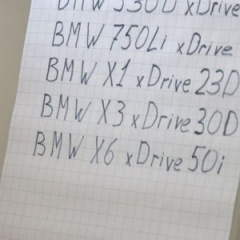 BMW 530D xDrive
BMW 750Li xDrive
BMW X1 xDrive 23D
BMW X3 xDrive 30D
BMW X6 xDrive 50i